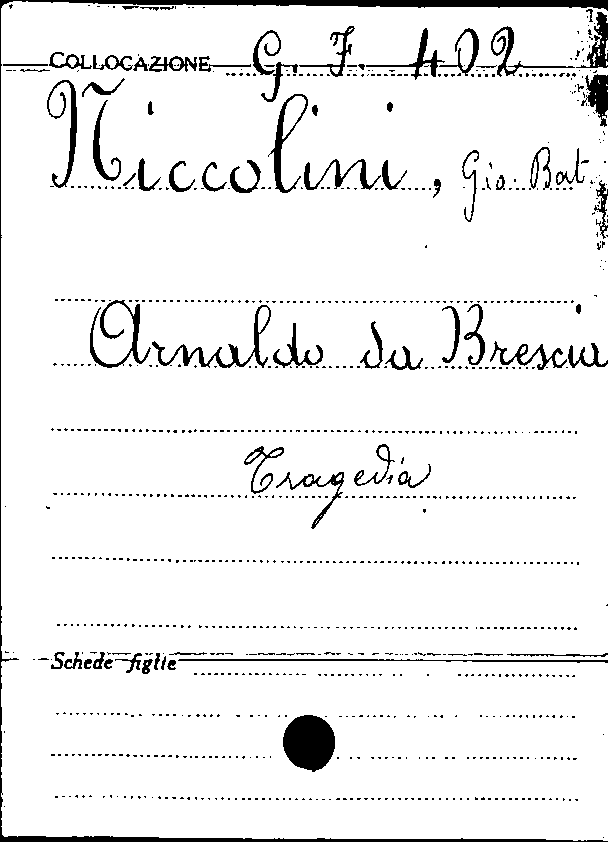 COLLOCAZIONE G. F. 402
Niccolini, Gio. Bat.
Arnaldo da Brescia
Tragedia
Schede figlie